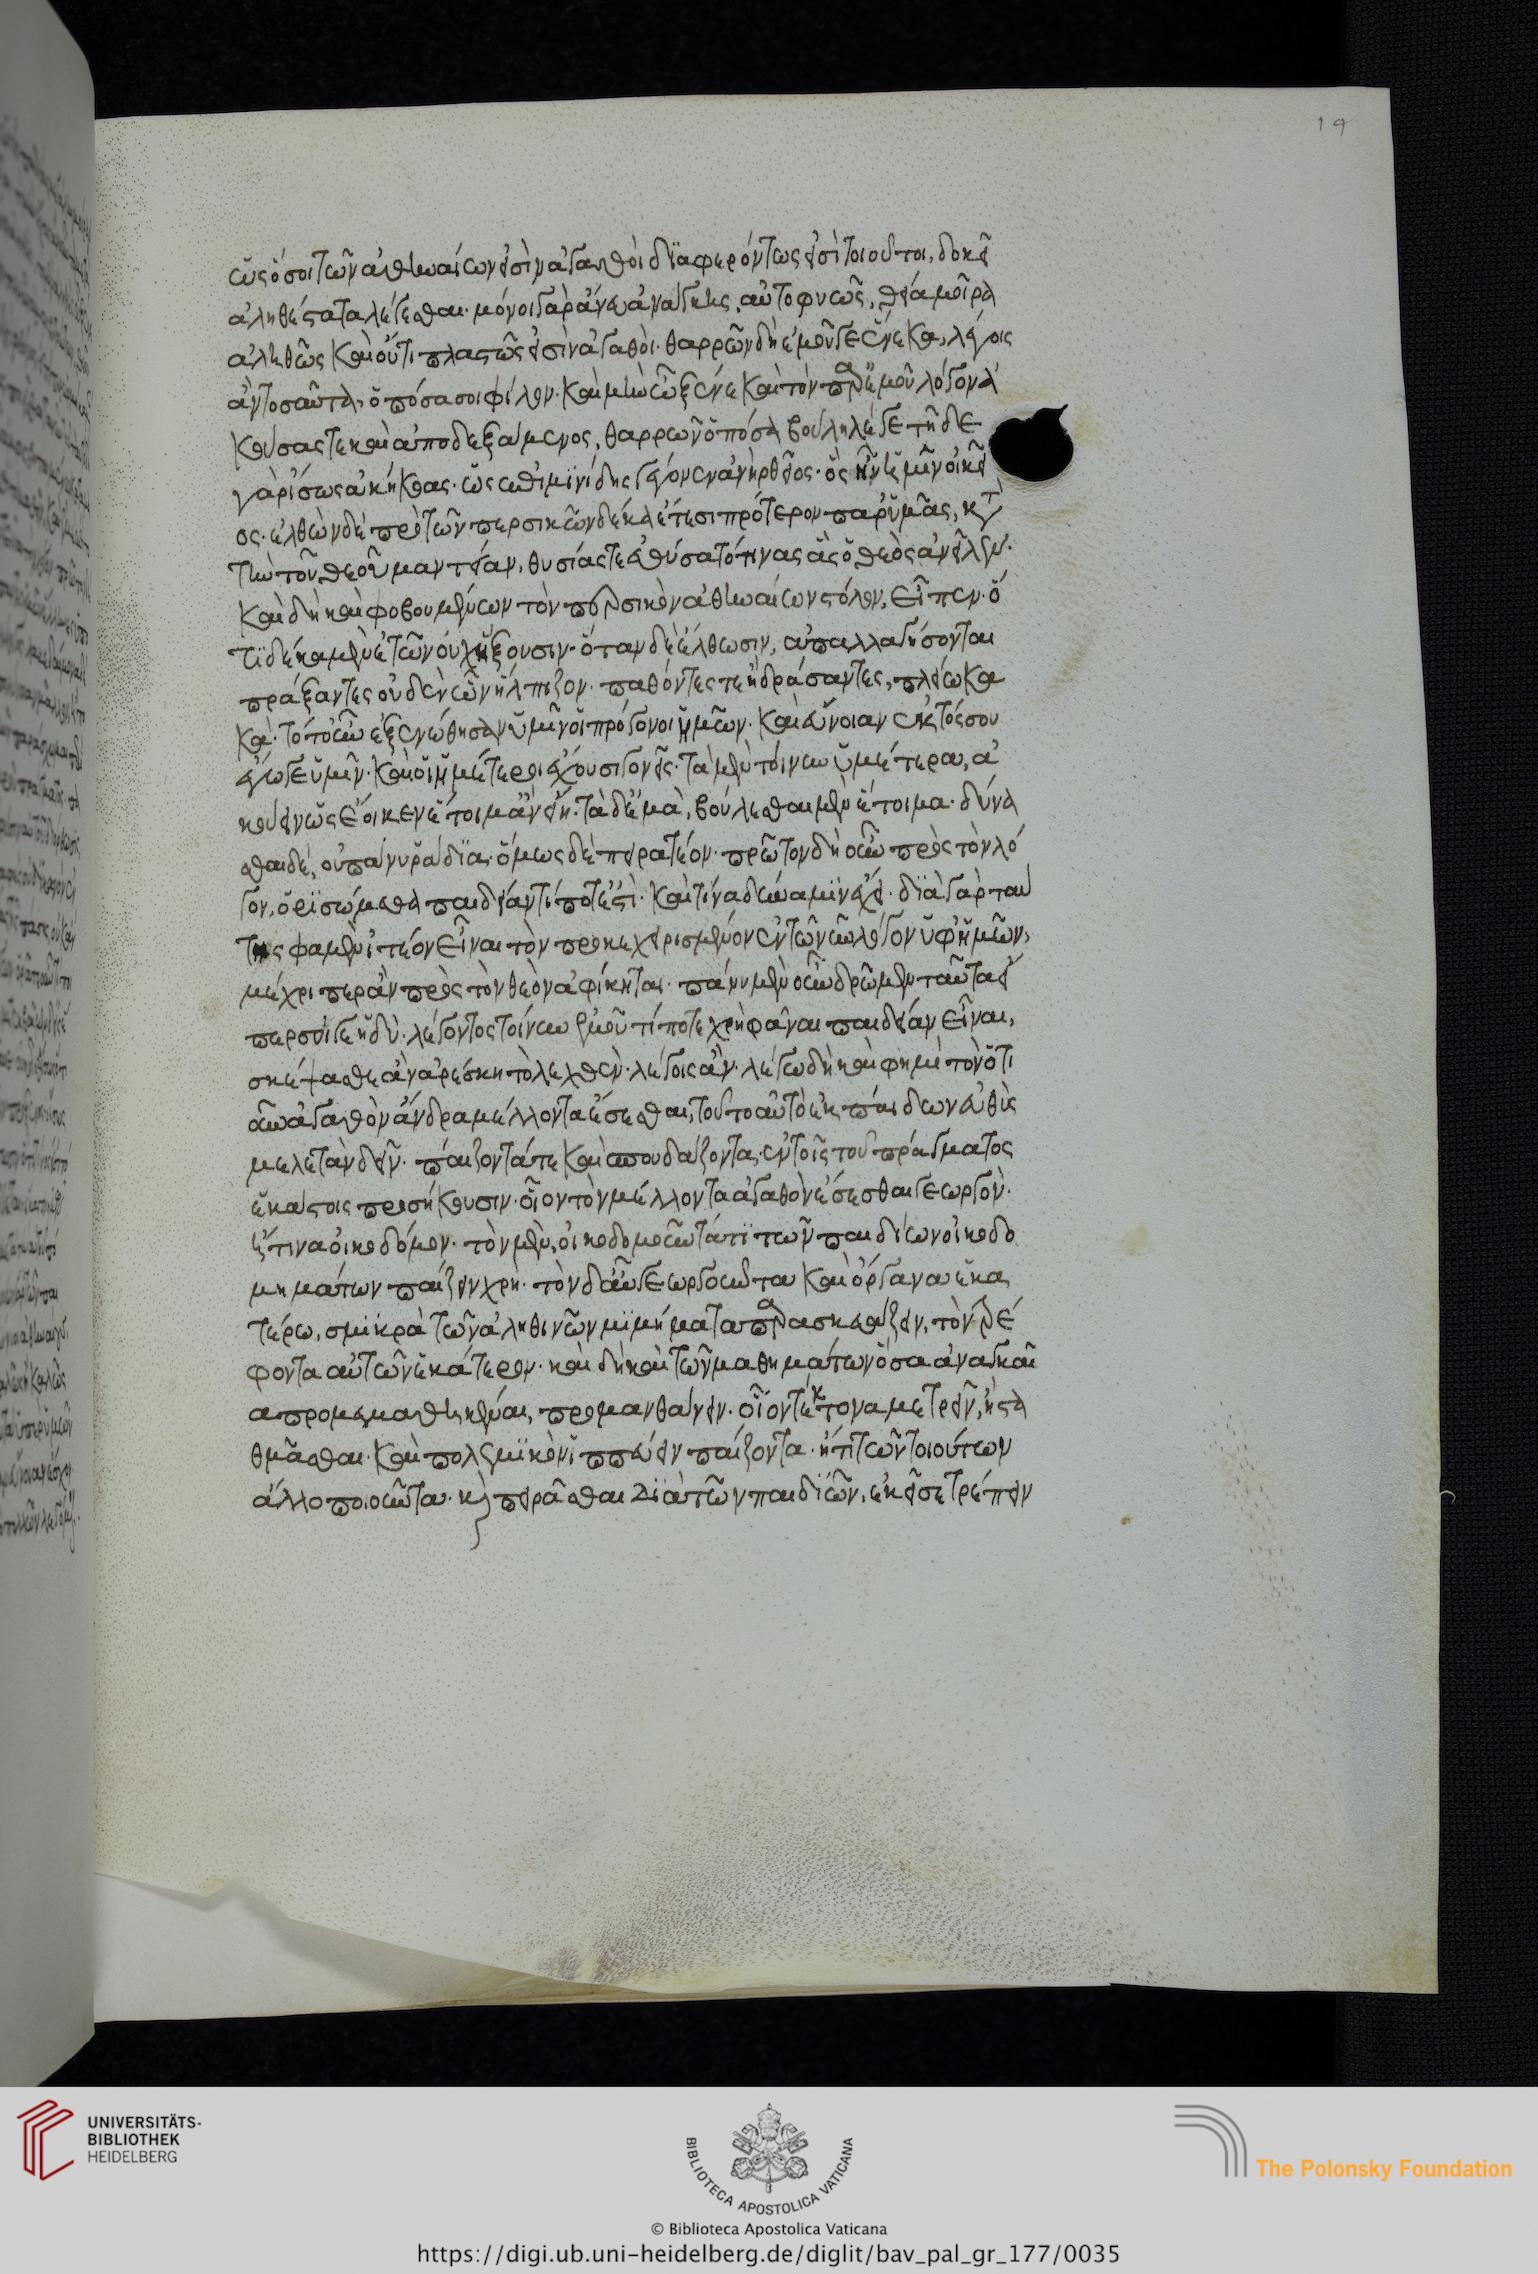 ὡς ὅσοι τῶν ἀθηναίων εἰσὶν ἀγαθοὶ διαφερόντως εἰσὶ τοιοῦτοι, δοκεῖ
ἀληθέστατα λέγεσθαι· μόνοι γὰρ ἄνευ ἀνάγκης, αὐτοφυῶς, θεία μοῖρα
ἀληθῶς καὶ οὔτι πλαστῶς εἰσὶν ἀγαθοὶ· θαρρῶν δὴ ἐμοῦ γε ἕνεκα, λέγοις
ἂν τοσαῦτα, ὁπόσα σοι φίλον· καὶ μὴν ὦ ξένε καὶ τὸν παρ' ἐμοῦ λόγον ἀ
κούσας τε καὶ ἀποδεξάμενος, θαρρῶν ὁπόσα βούλει λέγε τῆδε
γὰρ ἴσως ἀκήκοας· ὡς ἐπιμενίδης γέγονεν ἀνὴρ θεῖος· ὃς ἦν ἡμῖν οἰκεῖ
ος· ἐλθὼν δὲ πρὸ τῶν περσικῶν δέκα ἔτεσι πρότερον παρ' ὑμᾶς, κατὰ
τὴν τοῦ θεοῦ μαντείαν, θυσίας τε ἐθύσατό τινας ἃς ὁ θεὸς ἀνεῖλεν·
καὶ δὴ καὶ φοβουμένων τὸν περσικὸν ἀθηναίων στόλον, εἶπεν· ὅ
τι δέκα μὲν ἐτῶν οὐχ ἥξουσιν· ὅταν δὲ ἔλθωσιν, ἀπαλλαγήσονται
πράξαντες οὐδὲν ὧν ἤλπιζον· παθόντες τε ἢ δράσαντες, πλείω κα
κά· τότ' οὖν ἐξενώθησαν ὑμῖν οἱ πρόγονοι ἡμῶν· καὶ εὔνοιαν ἐκ τόσου
ἔγωγε ὑμῖν· καὶ οἱ ἡμέτεροι ἔχουσι γονεῖς· τὰ μὲν τοίνυν ὑμέτερα, ἀ
κούειν ὡς ἔοικεν ἕτοιμ' ἂν εἴη· τὰ δ' ἐμὰ, βούλεσθαι μὲν ἕτοιμα· δύνα
σθαι δὲ, οὐ πάνυ ῥάδια· ὅμως δὲ πειρατέον· πρῶτον δὴ οὖν πρὸς τὸν λό
γον, ὁρισώμεθα παιδείαν τί ποτ' ἐστὶ· καὶ τίνα δύναμιν ἔχει· διὰ γὰρ ταύ
της φαμὲν ἰτέον εἶναι τὸν προκεχειρισμένον ἐν τῷ νῦν λόγον ὑφ' ἡμῶν,
μέχρι περ ἂν πρὸς τὸν θεὸν ἀφίκηται· πάνυ μὲν οὖν δρῶμεν ταῦτα εἴ
περ σοί γε ἡδύ· λέγοντος τοίνυν ἐμοῦ τί ποτε χρὴ φάναι παιδείαν εἶναι,
σκέψασθε ἂν ἀρέσκη τὸ λεχθὲν· λέγοις ἄν· λέγω δὴ καὶ φημὶ τὸν ὁτι
οῦν ἀγαθὸν ἄνδρα μέλλοντα ἔσεσθαι, τοῦτο αὐτὸ ἐκ παίδων εὐθὺς
μελετᾶν δεῖν· παίζοντά τε καὶ σπουδάζοντα, ἐν τοῖς τοῦ πράγματος
ἑκάστοις προσήκουσιν· οἷον τὸν μέλλοντα ἀγαθὸν ἔσεσθαι γεωργὸν·
ἤ τινα οἰκοδόμον· τὸν μὲν, οἰκοδομοῦντά τι τῶν παιδίων οἰκοδο
μημάτων παίζειν χρὴ· τὸν δ' αὖ γεωργοῦντα καὶ ὄργανα ἑκα
τέρω, σμικρὰ τῶν ἀληθινῶν μιμήματα παρασκευάζειν, τὸν τρέ
φοντα αὐτῶν ἑκάτερον· καὶ δὴ καὶ τῶν μαθημάτων ὅσα ἀναγκαῖ
α προμεμαθηκέναι, προμανθάνειν· οἷον τέκτονα μετρεῖν, ἢ στα
θμᾶσθαι· καὶ πολεμικὸν ἱππεύειν παίζοντα· ἤ τι τῶν τοιούτων
ἄλλο ποιοῦντα· καὶ πειρᾶσθαι διὰ τῶν παιδιῶν, ἐκεῖσε τρέπειν
19
UNIVERSITÄTS-
BIBLIOTHEK
HEIDELBERG
BIBLIOTECA APOSTOLICA VATICANA
The Polonsky Foundation
© Biblioteca Apostolica Vaticana
https://digi.ub.uni-heidelberg.de/diglit/bav_pal_gr_177/0035